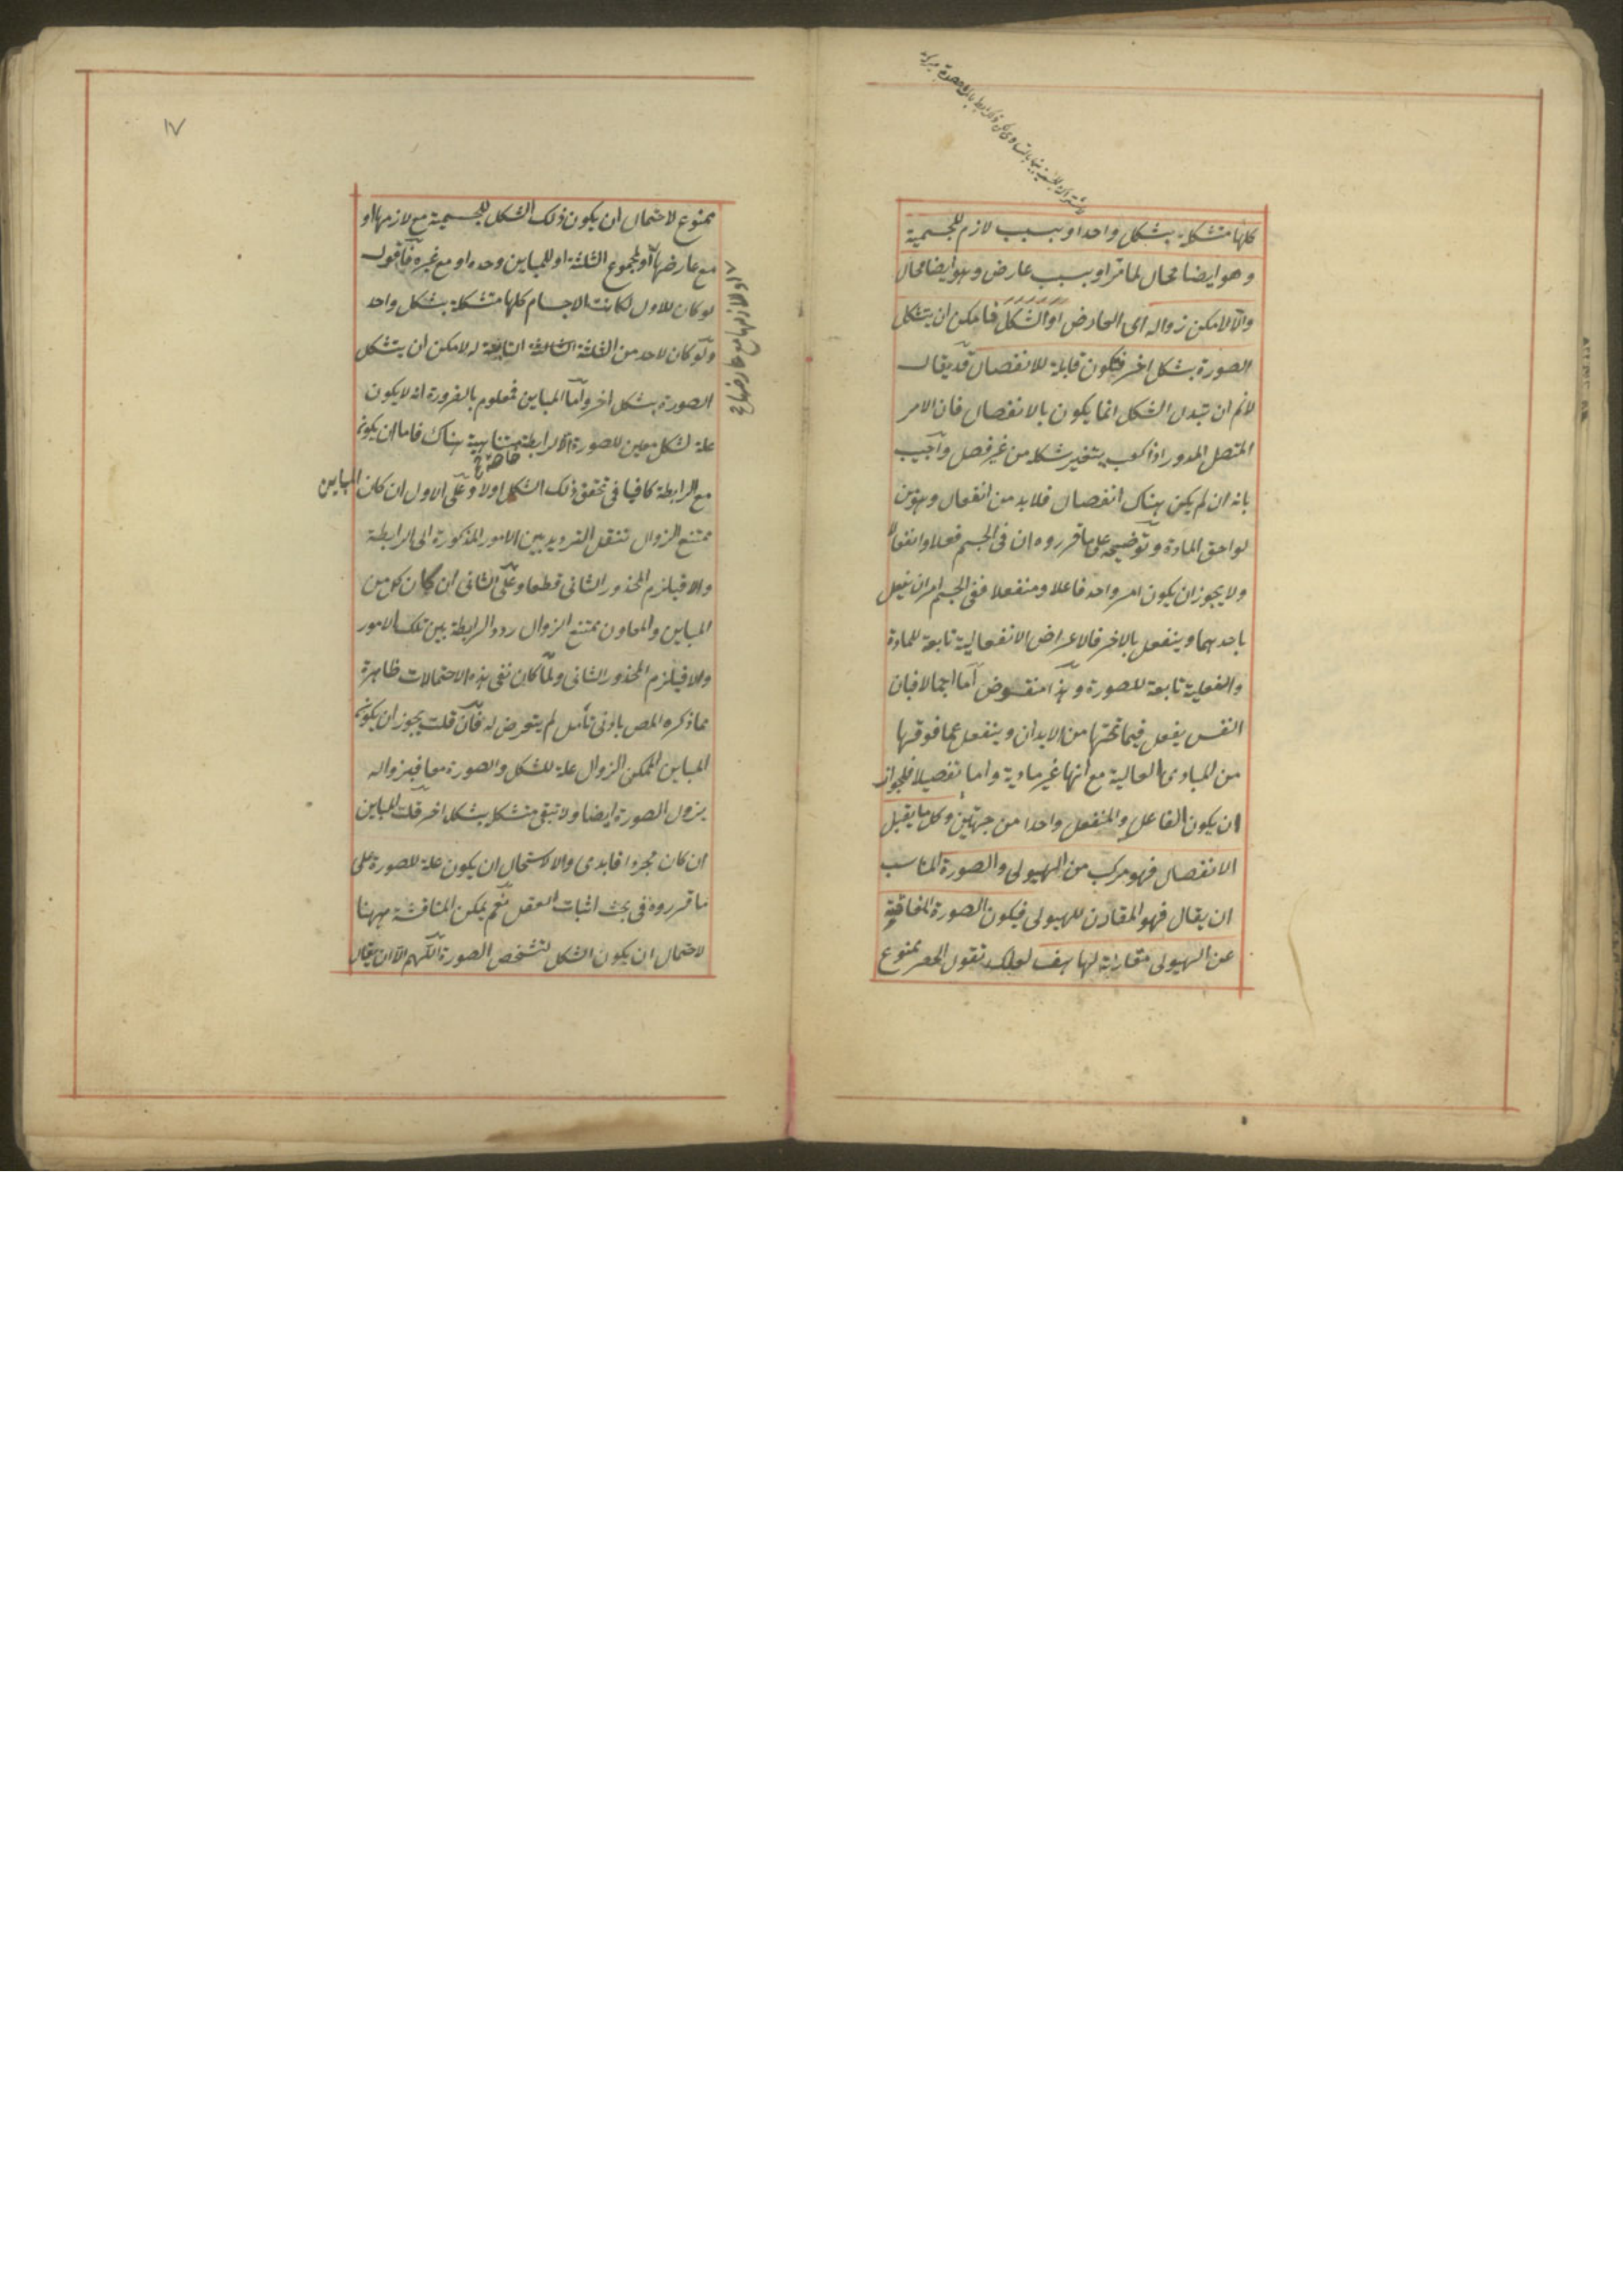 كلها متشكلة بشكل واحد او بسبب لازم للجسمية
وهو ايضا محال لما مر او بسبب عارض وهو ايضا محال
والا لامكن زواله اى العارض او الشكل فامكن ان يتشكل
الصورة بشكل اخر فتكون قابلة للانفصال قد يقال
لانم ان تبدل الشكل انما يكون بالانفصال فان الامر
المتصل المدور اذا كعب يتغير شكله من غير فصل واجيب
بانه ان لم يكن هناك انفصال فلا بد من انفعال وهو من
لواحق المادة وتوضيحه على ما قرروه ان فى الجسم فعلا وانفعالا
ولا يجوز ان يكون امر واحد فاعلا ومنفعلا ففى الجسم امران يفعل
باحدهما وينفعل بالاخر فالاعراض الانفعالية تابعة للمادة
والفعلية تابعة للصورة وهذا منقوض اما اجمالا فبان
النفس يفعل فيما تحتها من الابدان وينفعل عما فوقها
من المبادى العالية مع انها غير مادية واما تفصيلا فلجواز
ان يكون الفاعل والمنفعل واحدا من جهتين وكل ما يقبل
الانفصال فهو مركب من الهيولى والصورة المناسب
ان يقال فهو المقارن للهيولى فيكون الصورة المفارقة
عن الهيولى مقارنة لها هف لعلك تقول الحصر ممنوع
١٧
ممنوع لاحتمال ان يكون ذلك الشكل للجسمية مع لازمها او
مع عارضها او لمجموع الثلثة او للمباين وحده او مع غيره فاقول
لو كان للاول لكانت الاجسام كلها متشكلة بشكل واحد
ولو كان لاحد من الثلثة الثالثة التابعة له لامكن ان يتشكل
الصورة بشكل اخر واما المباين فمعلوم بالضرورة انه لا يكون
علة لشكل معين للصورة الا لرابطة خاصة هناك فاما ان يكون
مع الرابطة كافيا فى تحقق ذلك الشكل اولا وعلى الاول ان كان المباين
ممتنع الزوال تنقل الترديد بين الامور المذكورة الى الرابطة
والا فيلزم المحذور الثانى قطعا وعلى الثانى ان كان كل من
المباين والمعاون ممتنع الزوال ردد الرابطة بين تلك الامور
والا فيلزم المحذور الثانى ولما كان نفى هذه الاحتمالات ظاهرة
مما ذكره المص بادنى تأمل لم يتعرض له فان قلت يجوز ان يكون
المباين الممكن الزوال علة للشكل والصورة معا فبزواله
يزول الصورة ايضا ولا تبقى متشكلة بشكل اخر قلت المباين
ان كان مجردا فابدى والا لاستحال ان يكون علة للصورة على
ما قرروه فى بحث اثبات العقل نعم يمكن المناقشة ههنا
لاحتمال ان يكون الشكل لتشخص الصورة اللهم الا ان يقال